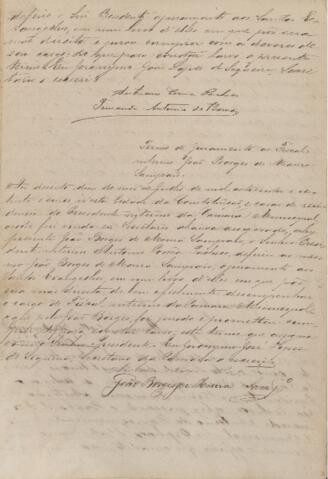 deferio o Snr Presidente o juramento aos Santos E-
vangelhos, em um livro d'elles em que poz sua
mão direita e jurou cumprir com os deveres de
seu cargo, do que para constar lavro o presente
Termo. Eu Jeronymo José Lopes de Siqueira, Secre-
tario o escrevi
Antonio Corrêa
Fernando Antonio de Barros
Termo de juramento ao Fiscal
interino João Borges de Moura
Sampaio.
Aos dezoito dias do mez de de mil oitocentos e
e n'esta Cidade da Constituição e casa de resi-
dencia do Presidente interino da Camara Municipal,
onde fui vindo eu Secretario abaixo assignado, ahi
presente João Borges de Moura Sampaio, o Senhor Presi-
dente interino Antonio Corrêa deferio ao mesmo
João Borges de Moura Sampaio, o juramento aos
Santos Evangelhos, em um livro d'elles em que poz
sua mão direita de bem e fielmente desempenhar
o cargo de Fiscal interino da Camara Municipal
e pelo João Borges, foi jurado e promettido cum-
prir. De que para constar lavro, este termo que assigna
com o Senhor Presidente. Eu Jeronymo José Lopes
de Siqueira, Secretario da Camara o escrevi
João Borges de Moura Samp.º